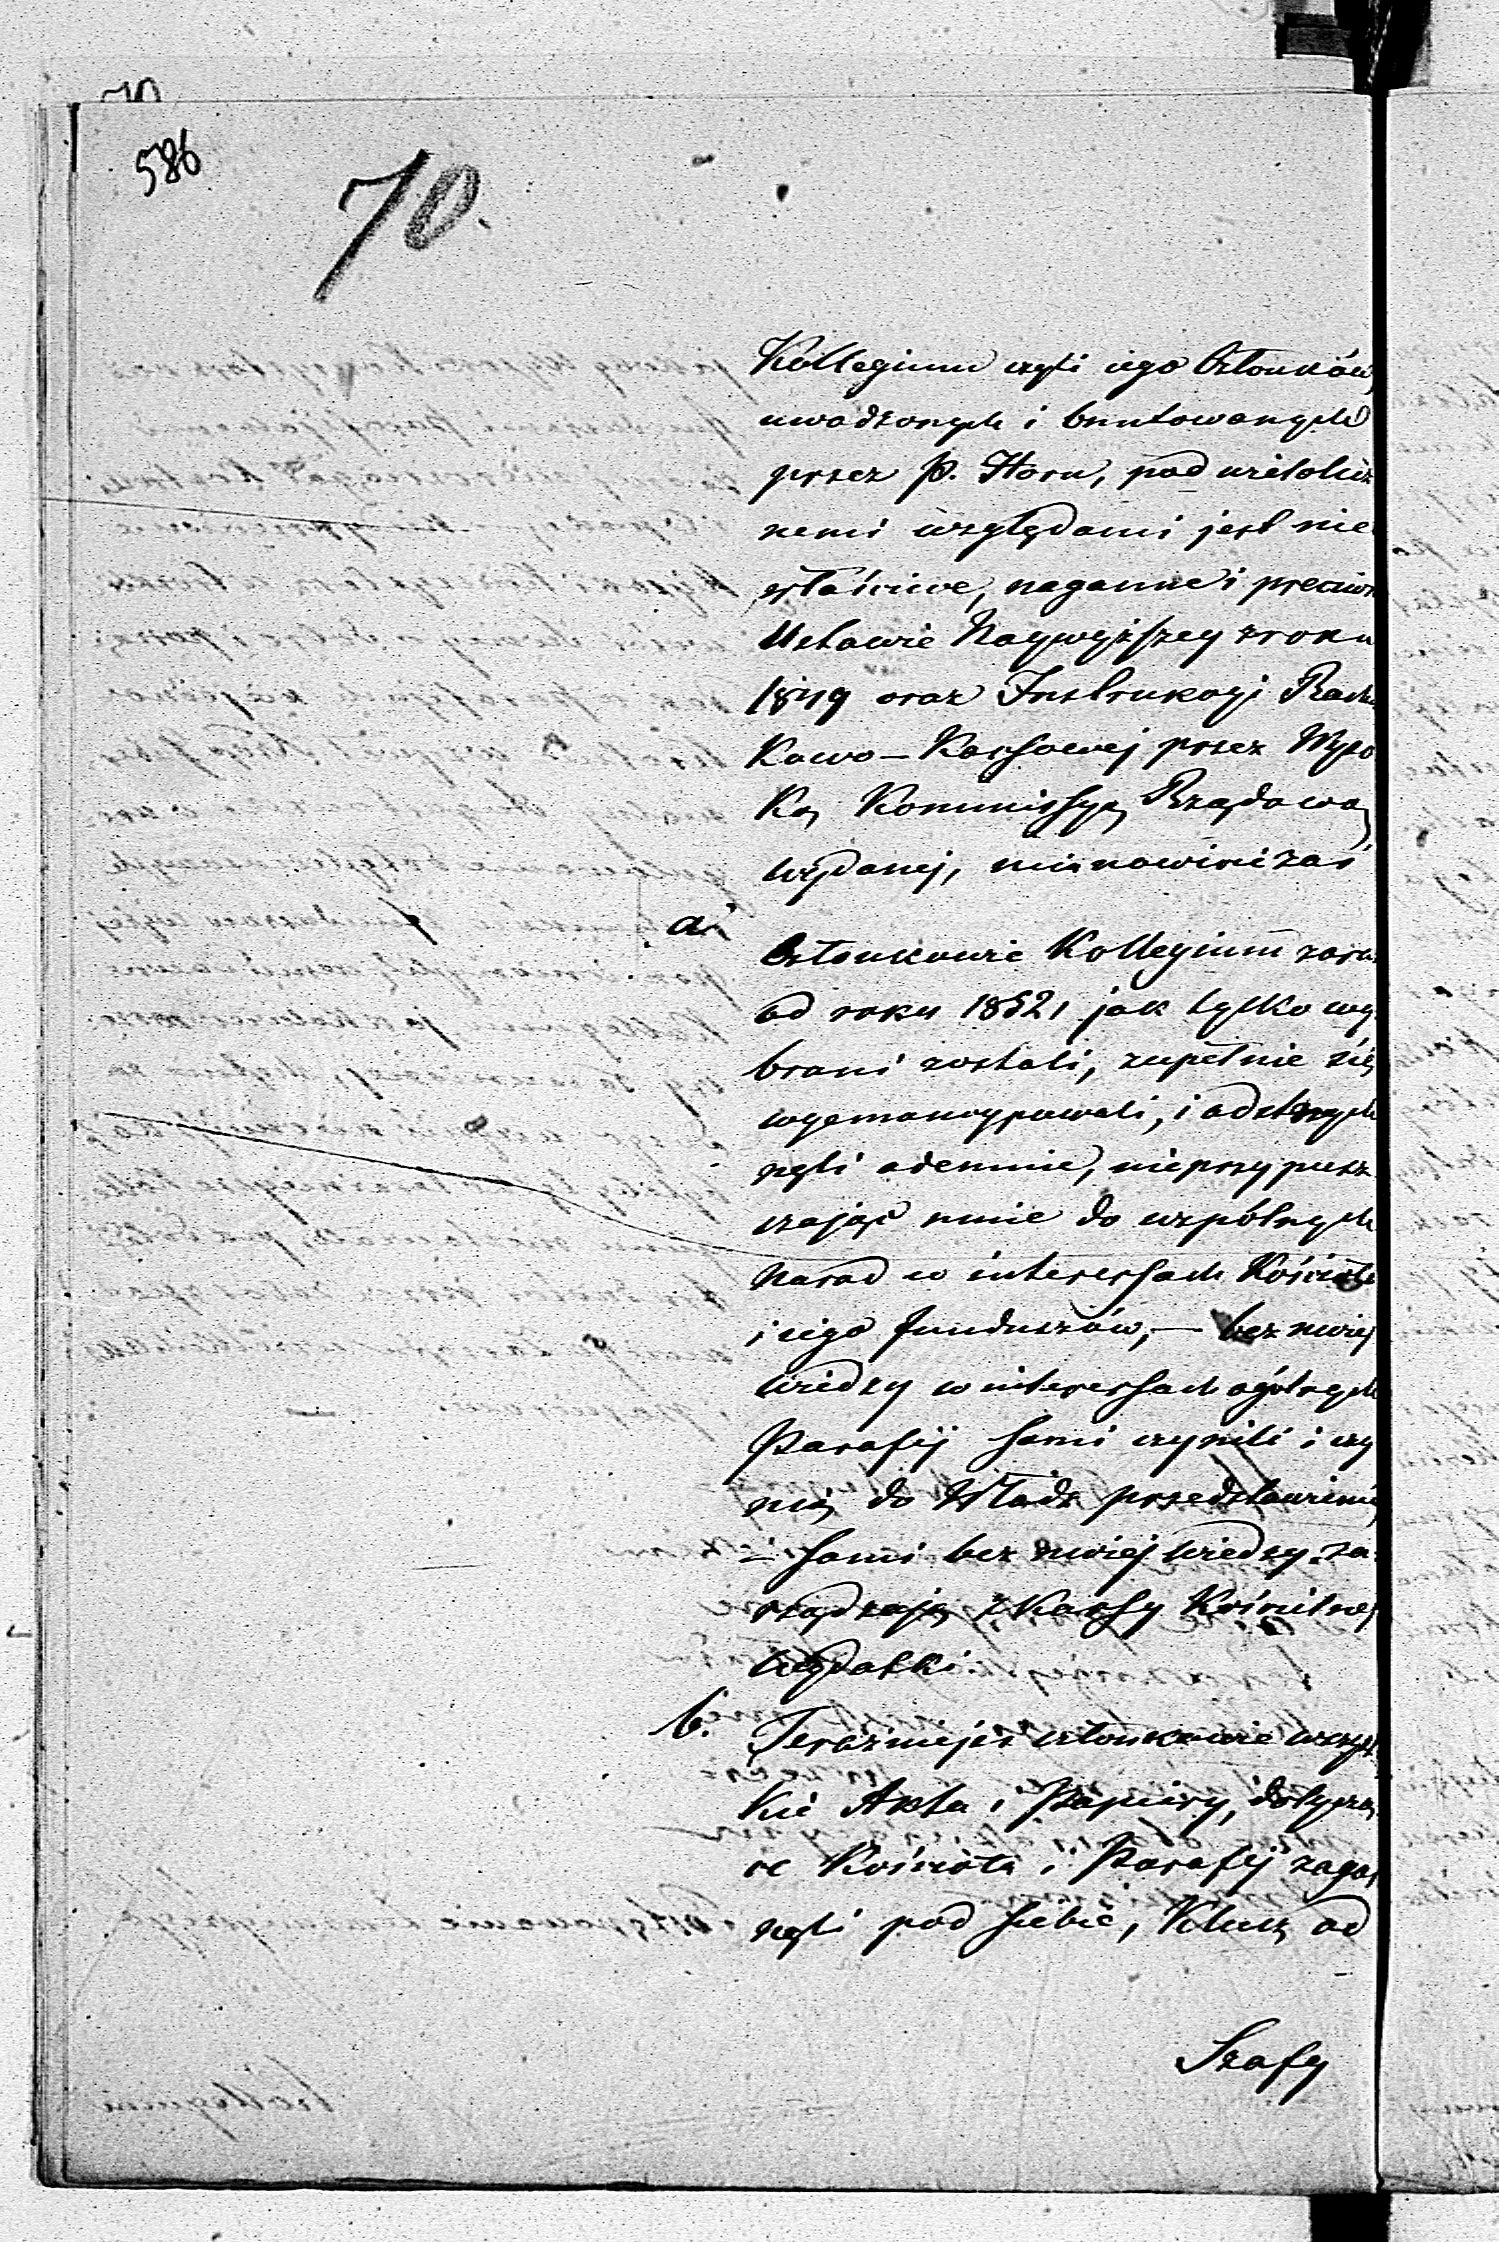 586
70.
Kollegium czyli iego Członków,
uwodzonych i buntowanych
przez P. Horn, pod wielolicz
nemi względami jest nie
właściwe, naganne i przeciw
Ustawie Naywyższey z roku
1849 oraz Instrukcyi Rach
Kowo-Kassowej przez Wyso
Ką Kommissyą Rządową
wydanej, mianowicie zaś
a.
Członkowie Kollegium zaraz
od roku 1852, jak tylko wy
brani zostali, zupełnie się
wyemancypowali, i odstrych
nęli odemnie, nieprzypusz
czając mnie do wspólnych
narad w interessach Kościoła
i iego funduszów, — bez mojej
wiedzy w interessach ogólnych
Parafij sami czynili i czy
nią do Władz przedstawienia
i sami bez mojej wiedzy za
rządzają z Kassy Kościelnej
wydatki.
b.
Teraźniejsi członkowie wszyst
kie Akta i Papiery, dotyczą
ce Kościoła i Parafij zagar
nęli pod siebie, Klucz od
Szafy